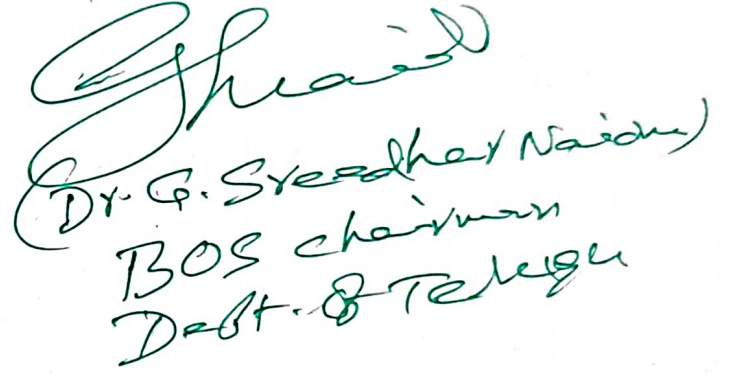 (Dr. G. Sreedhar Naidu)
BOS chairman
Dept. of Telugu